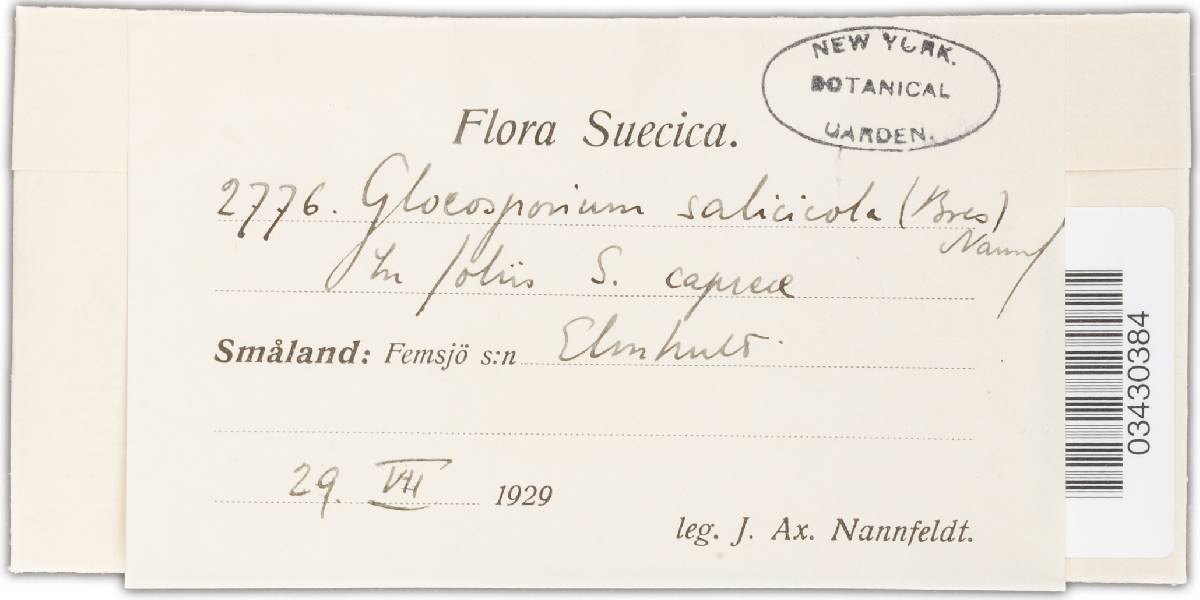 NEW YORK.
BOTANICAL
GARDEN.
Flora Suecica.
2776. Gloeosporium salicicola (Bres)
Nannf
In foliis S. capreæ
Småland: Femsjö s:n Elmhult.
29. VII 1929
leg. J. Ax. Nannfeldt.
03430384